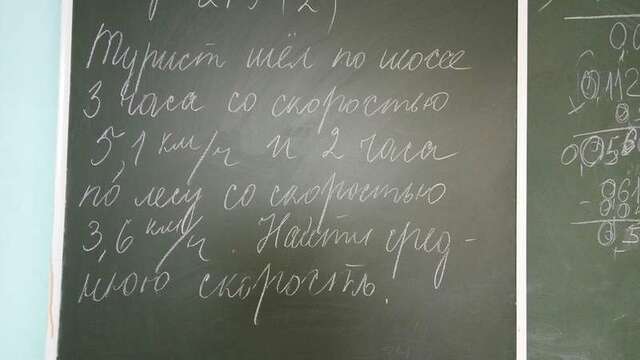 Турист шёл по шоссе
3 часа со скоростью
5,1 км/ч и 2 часа
по лесу со скоростью
3,6 км/ч. Найти сред-
нюю скорость.
0,112